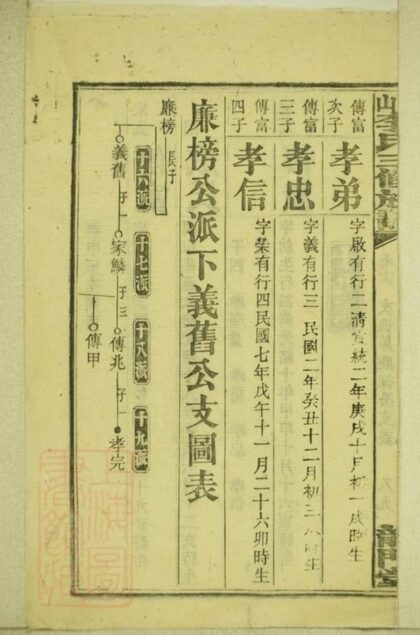 李氏三修族譜
傳富
次子
孝弟
字啟有行二清宣統二年庚戌十月初一戌時生
傳富
三子
孝忠
字義有行三民國二年癸丑十二月初三 時生
傳富
四子
孝信
字榮有行四民國七年戊午十一月二十六卯時生
廉榜公派下義舊公支圖表
廉榜 長子
十六派 十七派 十八派 十九派
義舊 子一 家鱗 子三 傳兆 子一 孝完
傳甲